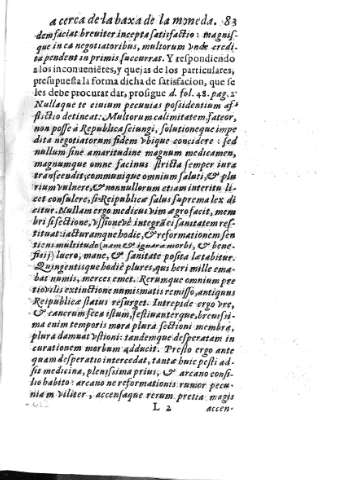 acerca de la baxa de la moneda. 83
dem faciat breviter incepta satisfactio: magnis-
que in ea negotiatoribus, multorum unde credi-
ta pendent in primis succurras. Y respondiendo
a los inconueniẽtes, y quejas de los particulares,
presupuesta la forma dicha de satisfacion, que se
les debe procurar dar, prosigue d. fol. 48. pag. 2
Nullaque te civium pecuvias possidentium af-
flictio detineat: Multorum calamitatem fateor,
non posse à Republica sciungi, solutioneque impe
dita negotiatorum fidem vbique concidere: sed
nullum sine amaritudine magnum medicamen,
magnumque omne facinus stricta semper iura
transcendit; communique omnium saluti, & plu
rium vulnere, & nonnullorum etiam interitu li-
cet consulere, si Reipublicæ salus suprema lex di
citur. Nullam ergo medicus vim agro facit, mem
bri si sectione, vssione vè integræ ei sanitatem ref-
tituat: iacturamque hodie, & reformationem sen
tiens multitudo (nam & ignara morbi, & bene-
ficij) luero, mane, & sanitate posita lætabitur.
Quingentisque hodiè plures, quæ heri mille ema-
bat numis, merces emet. Rerumque omnium pre
tio vilis extinctione numismatis remisso, antiquus
Reipublicæ status resurget. Intrepide ergo vre,
& cancrum seca istum, festinanterque, brevissi-
ma enim temporis mora plura sectioni membra,
plura damnat vstioni: tandemque desperatam in
curationem morbum adducit. Presto ergo ante
quam desperatio intercedat, tantæ huic pesti ad-
sis medicina, plenissima prius, & arcano consi-
lio habito: arcano ne reformationis rumor pecu-
niam viliter, accensaque rerum pretia magis
L 2 accen-